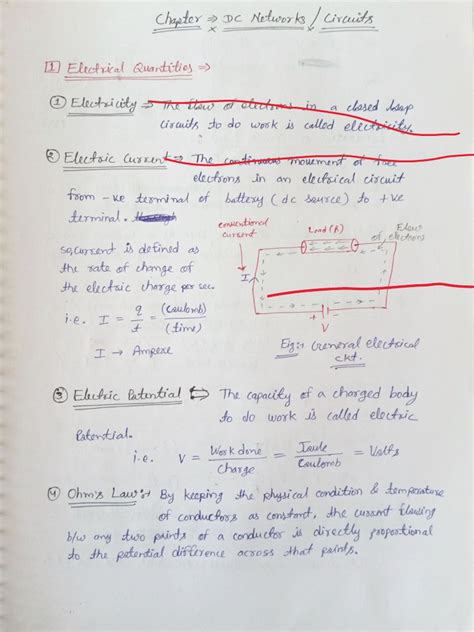 Chapter ⇒ DC Networks / Circuits
1 Electrical Quantities ⇒
① Electricity ⇒ The flow of electrons in a closed loop
circuits to do work is called electricity.
② Electric Current ⇒ The continuous movement of free
electrons in an electrical circuit
from -ve terminal of battery (dc source) to +ve
terminal.
conventional
current
Load (R)
Flow
of electrons
so, current is defined as
the rate of change of
the electric charge per sec.
I
i.e. I = q/t = (Coulomb)/(time)
+ -
V
I → Ampere
Fig:- General electrical
ckt.
③ Electric Potential ⇒ The capacity of a charged body
to do work is called electric
Potential.
i.e. V = Work done/Charge = Joule/Coulomb = Volts
④ Ohm's Law:- By keeping the physical condition & temperature
of conductors as constant, the current flowing
b/w any two points of a conductor is directly proportional
to the potential difference across that points.